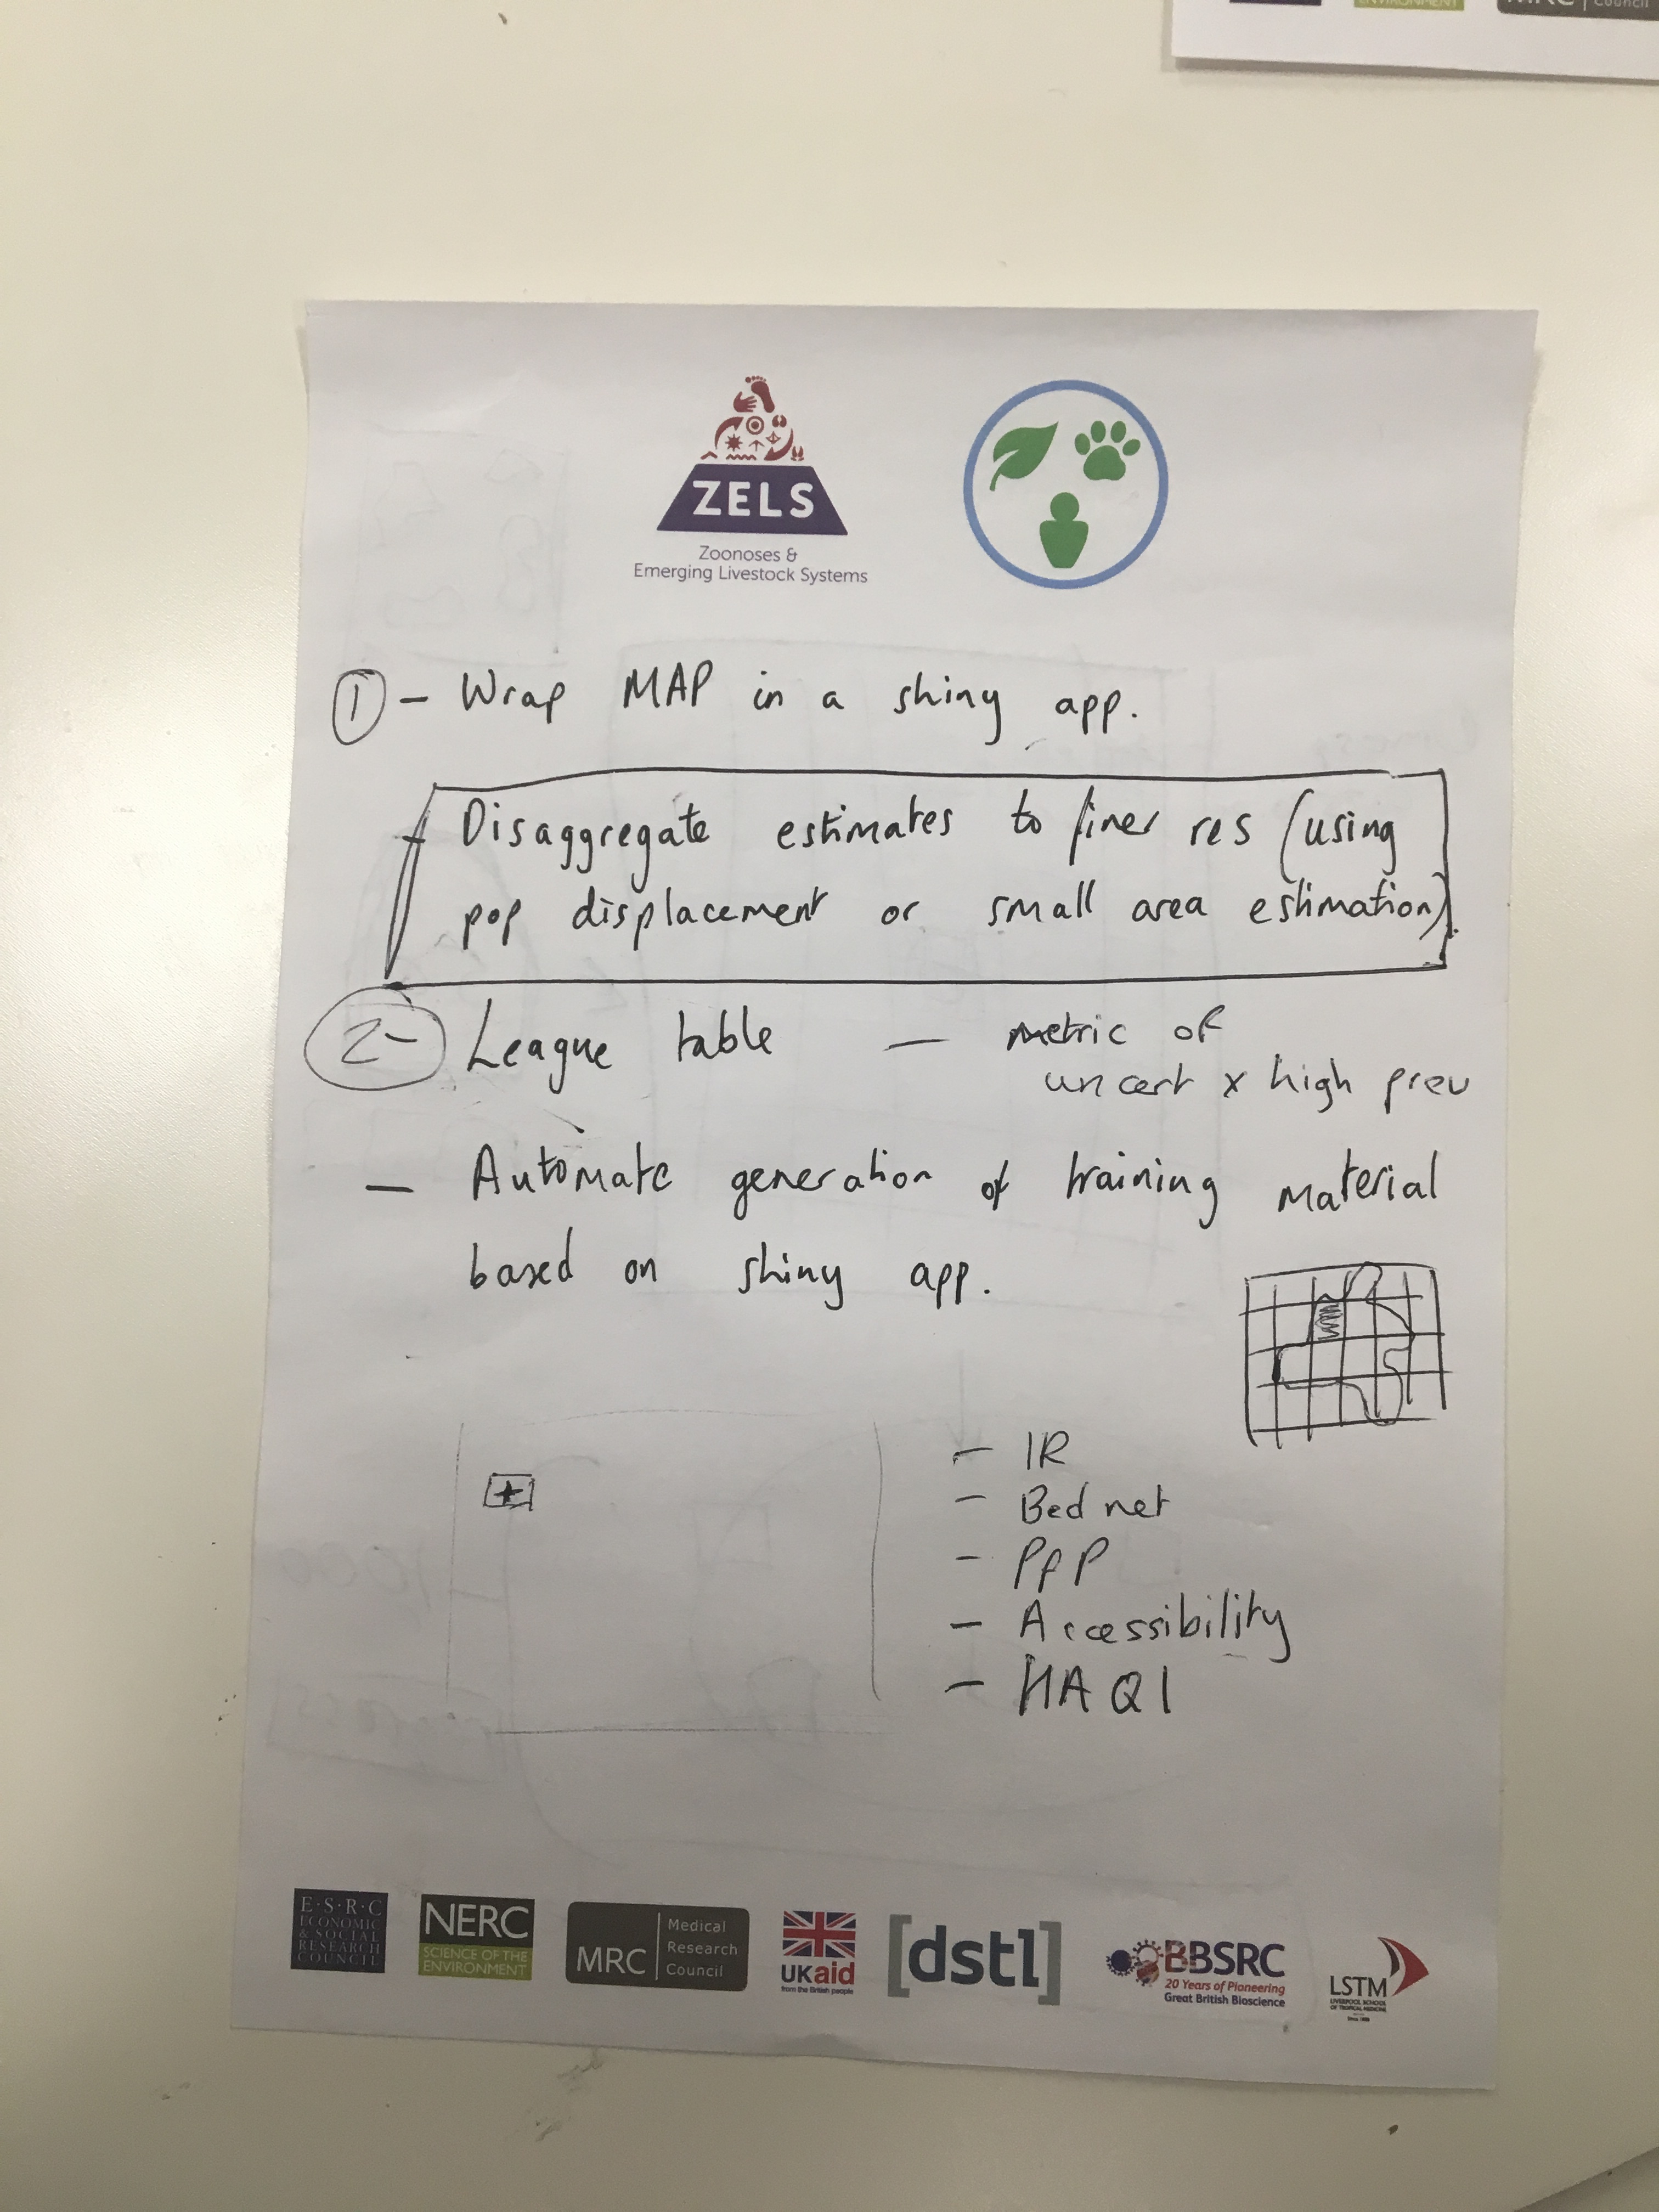 MRC Council
ENVIRONMENT
ZELS
Zoonoses &
Emerging Livestock Systems
1 - Wrap MAP in a shiny app.
- Disaggregate estimates to finer res (using
pop displacement or small area estimation).
2- League table — metric of
uncert x high prev
- Automate generation of training material
based on shiny app.
- IR
- Bed net
- PfP
- Accessibility
- HAQI
E·S·R·C
ECONOMIC
& SOCIAL
RESEARCH
COUNCIL
NERC
SCIENCE OF THE
ENVIRONMENT
MRC
Medical
Research
Council
UKaid
from the British people
[dstl]
BBSRC
20 Years of Pioneering
Great British Bioscience
LSTM
LIVERPOOL SCHOOL
OF TROPICAL MEDICINE